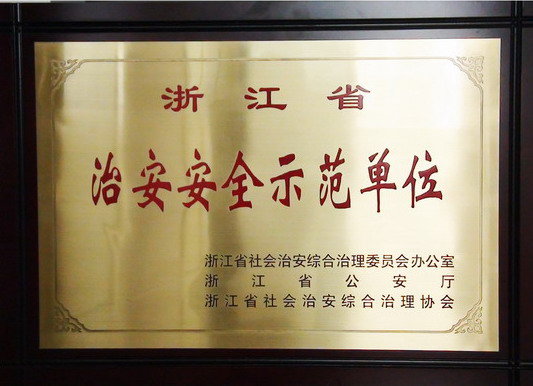 浙江省
治安安全示范单位
浙江省社会治安综合治理委员会办公室
浙江省公安厅
浙江省社会治安综合治理协会